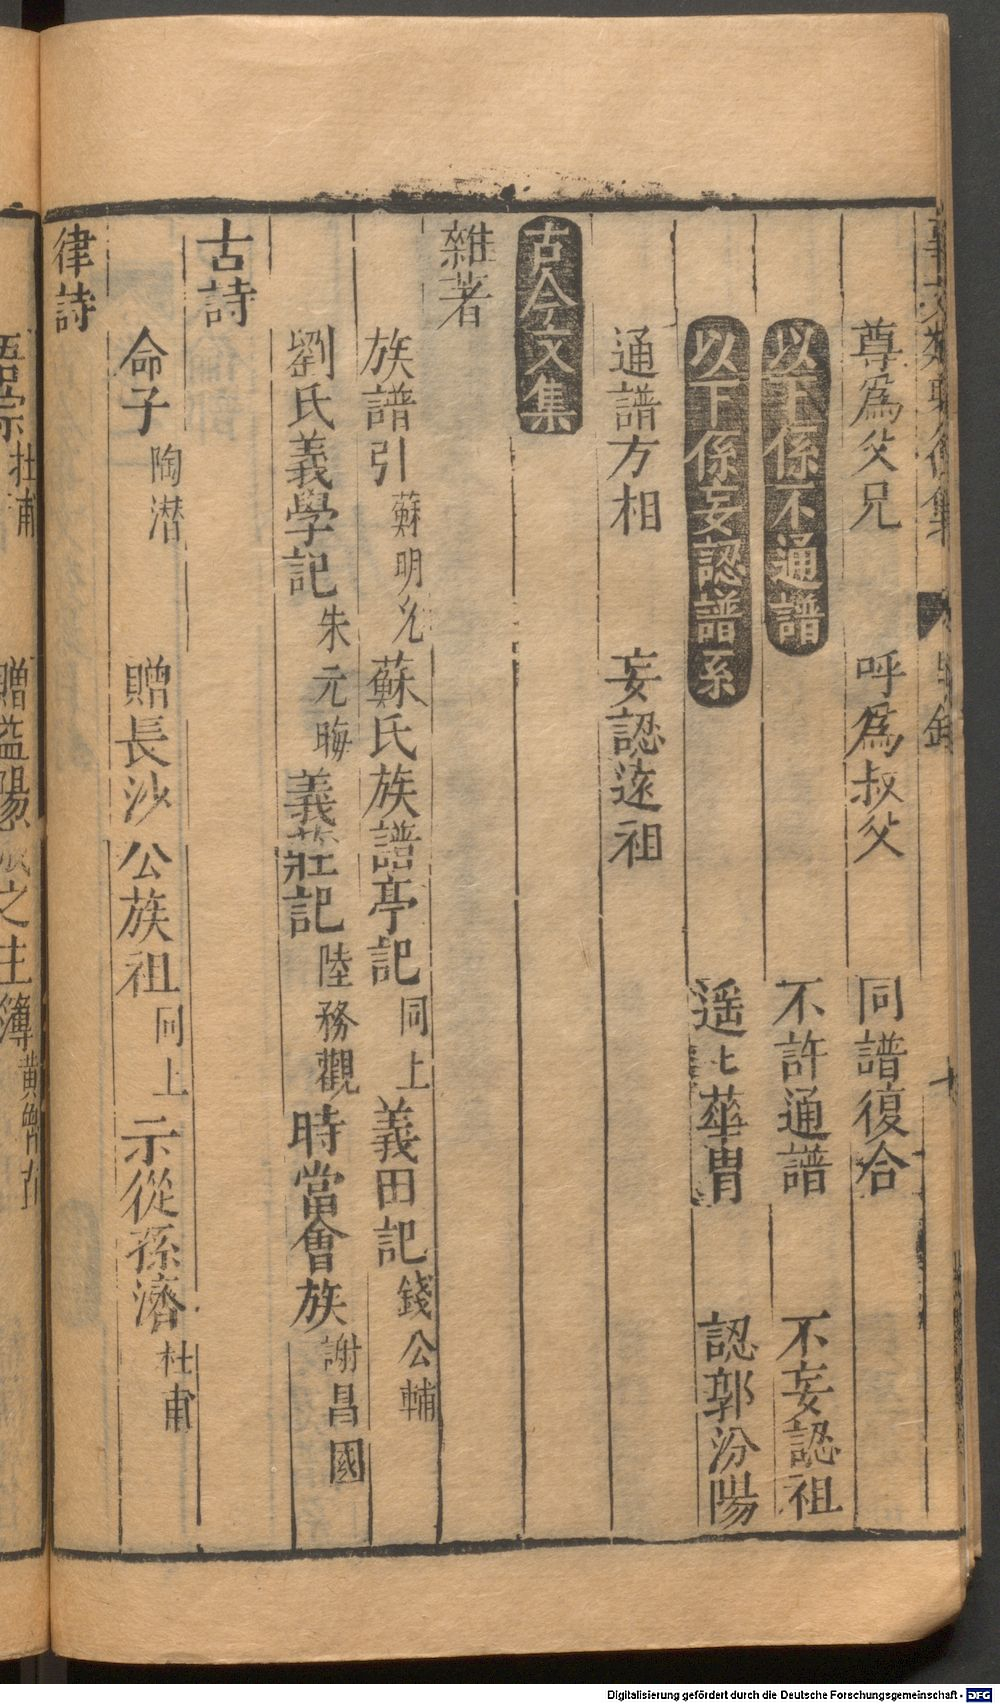 尊爲父兄 呼爲叔父 同譜復合
以下係不通譜 不許通譜 不妄認祖
以下係妄認譜系 遥遥華胄 認郭汾陽
通譜方相 妄認遠祖
古今文集
雜著
族譜引 蘇明允 蘇氏族譜亭記 同上 義田記 錢公輔
劉氏義學記 朱元晦 義莊記 陸務觀 時當會族 謝昌國
古詩
命子 陶潜 贈長沙公族祖 同上 示從孫濟 杜甫
律詩
杜甫 之主簿
Digitalisierung gefördert durch die Deutsche Forschungsgemeinschaft - DFG